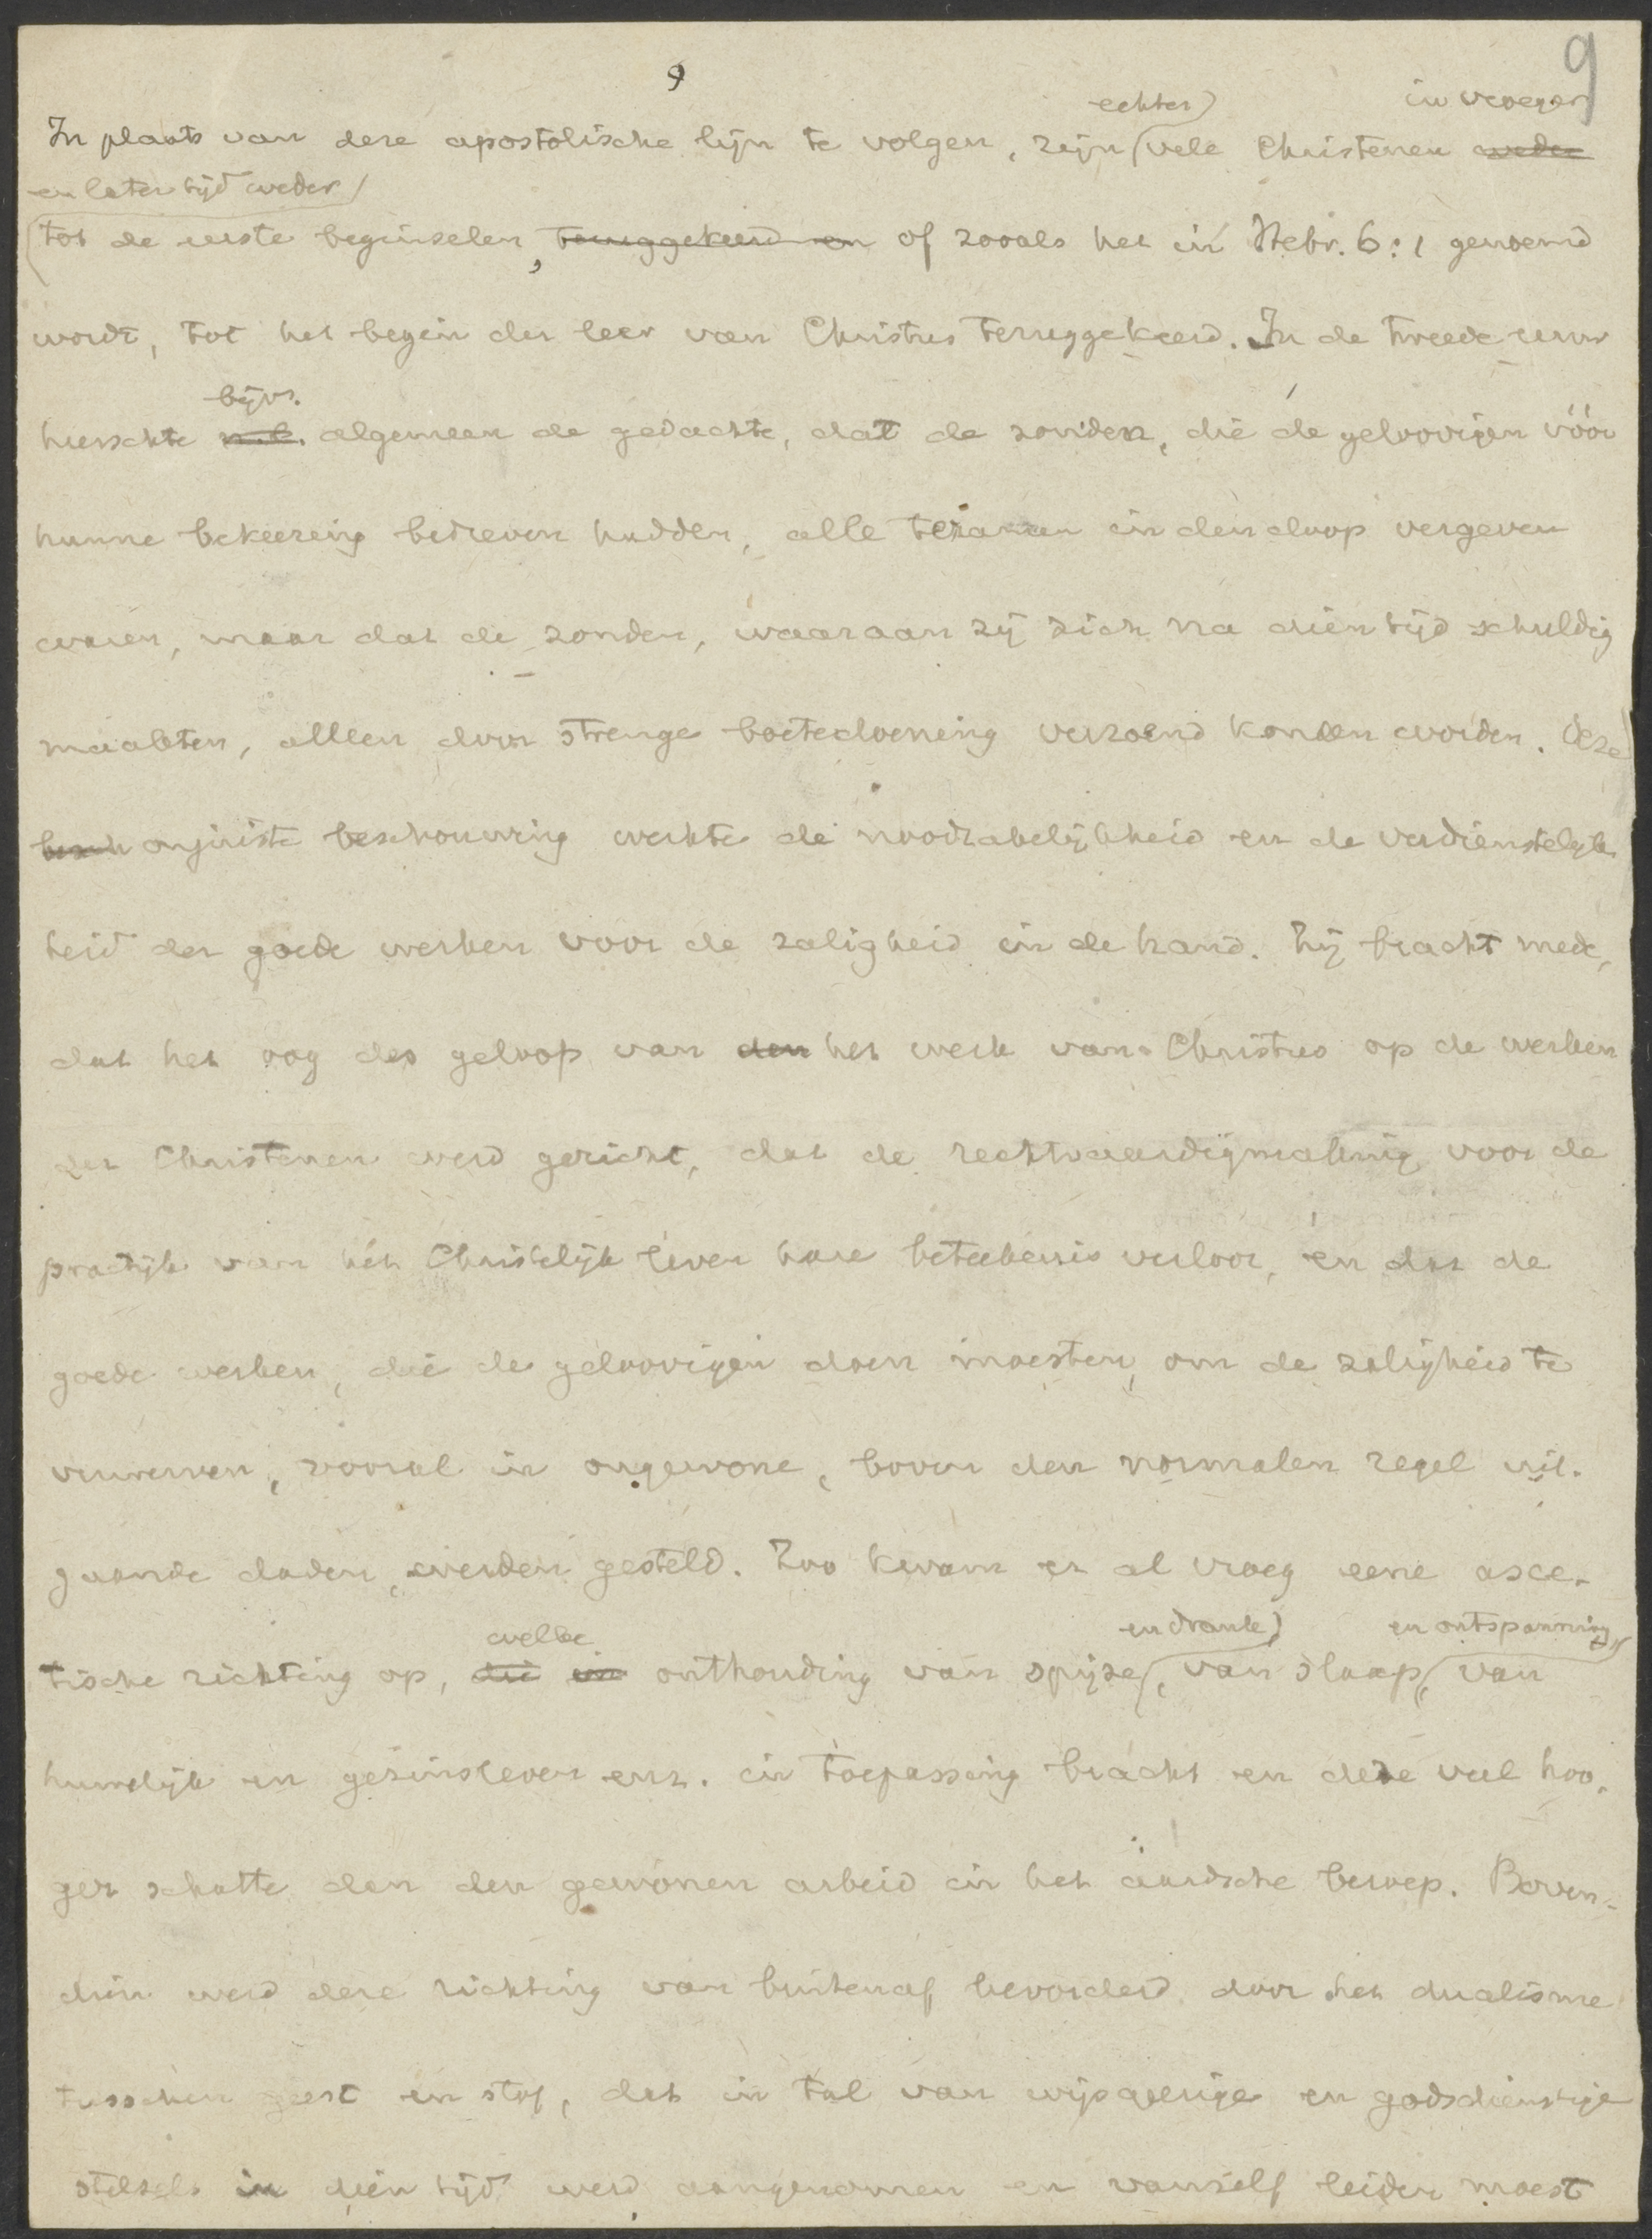 9
9
echter in vroeger
In plaats van deze apostolische lijn te volgen, zijn vele Christenen weder
en later tijd weder
tot de eerste beginselen, teruggekeerd en of zooals het in Hebr. 6:1 genoemd
wordt, tot het begin der leer van Christus teruggekeerd. In de tweede eeuw
bijv.
heerschte n.l. algemeen de gedachte, dat de zonden, die de geloovigen vóór
hunne bekeering bedreven hadden, alle in den doop vergeven
waren, maar dat de zonden, waaraan zij zich na dien tijd schuldig
maakten, alleen door strenge boetedoening verzoend konden worden. Deze
besch onjuiste beschouwing werkte de noodzakelijkheid en de verdienstelijk
heid der goede werken voor de zaligheid in de hand. Zij bracht mede,
dat het oog des geloofs van den het werk van Christus op de werken
der Christenen werd gericht, dat de rechtvaardigmaking voor de
practijk van het Christelijk leven hare beteekenis verloor, en dat de
goede werken, die de geloovigen doen moesten, om de zaligheid te
verwerven, vooral in ongewone, boven den normalen regel uit-
gaande daden, werden gesteld. Zoo kwam er al vroeg eene asce-
welke en drank en ontspanning
tische richting op, die in onthouding van spijze, van slaap, van
huwelijk en gezinsleven enz. in toepassing bracht en deze veel hoo-
ger schatte dan den gewonen arbeid in het aardsche beroep. Boven-
dien werd deze richting van buitenaf bevorderd door het dualisme
tusschen geest en stof, dat in tal van wijsgeerige en godsdienstige
stelsels in dien tijd werd aangenomen en vanzelf leiden moest